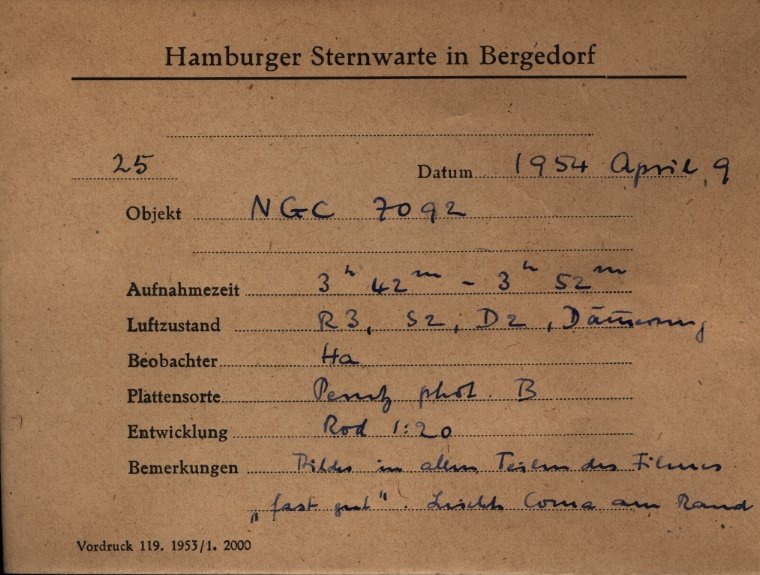 Hamburger Sternwarte in Bergedorf
25 Datum 1954 April 9
Objekt NGC 7092
Aufnahmezeit 3h 42m - 3h 52m
Luftzustand R3, S2, D2, Dämmerung
Beobachter Ha
Plattensorte Perutz phot. B
Entwicklung Rod 1:20
Bemerkungen Bilder in allen Teilen des Filmes
„fast gut". Leichte Coma am Rand
Vordruck 119. 1953/1. 2000